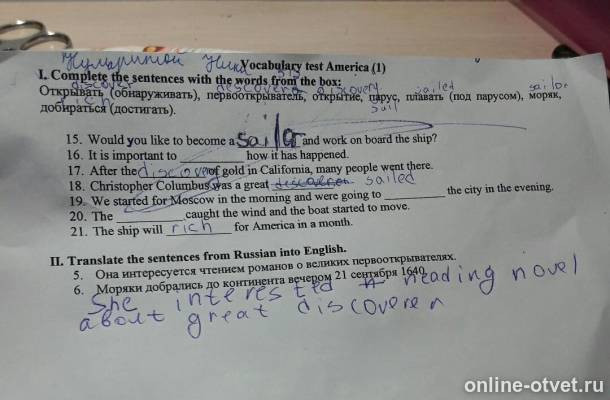 Vocabulary test America (1)
I. Complete the sentences with the words from the box:
discover discoverer discovery sailed sailor
Открывать (обнаруживать), первооткрыватель, открытие, парус, плавать (под парусом), моряк,
rich sail
добираться (достигать).
15. Would you like to become a sailor and work on board the ship?
16. It is important to ________ how it has happened.
17. After the discovery of gold in California, many people went there.
18. Christopher Columbus was a great sailed
19. We started for Moscow in the morning and were going to ________ the city in the evening.
20. The ________ caught the wind and the boat started to move.
21. The ship will rich for America in a month.
II. Translate the sentences from Russian into English.
5. Она интересуется чтением романов о великих первооткрывателях.
6. Моряки добрались до континента вечером 21 сентября 1640.
She interested reading novel
about great discoverer
online-otvet.ru